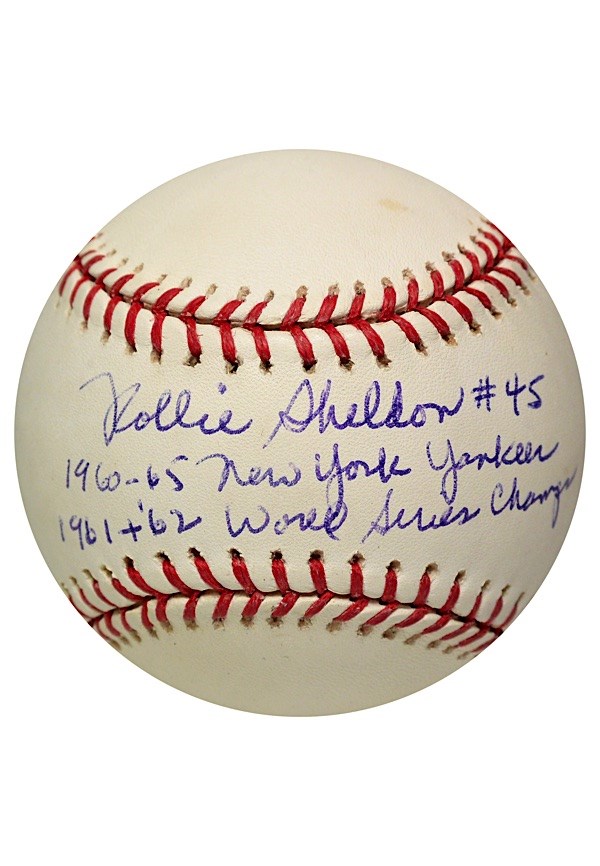 Rollie Sheldon #45
1960-65 New York Yankees
1961 + '62 World Series Champs